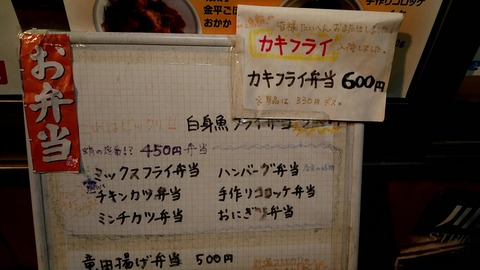 金平ごぼ
おかか
手作りコロッケ
お弁当
皆様たいへんおまたせしま
カキフライ 入荷しました。
カキフライ弁当 600円
単品は 330円デス。
白身魚フライ弁当
450円弁当
ミックスフライ弁当 ハンバーグ弁当
チキンカツ弁当 手作りコロッケ弁当
ミンチカツ弁当 おにぎり弁当
竜田揚げ弁当 500円